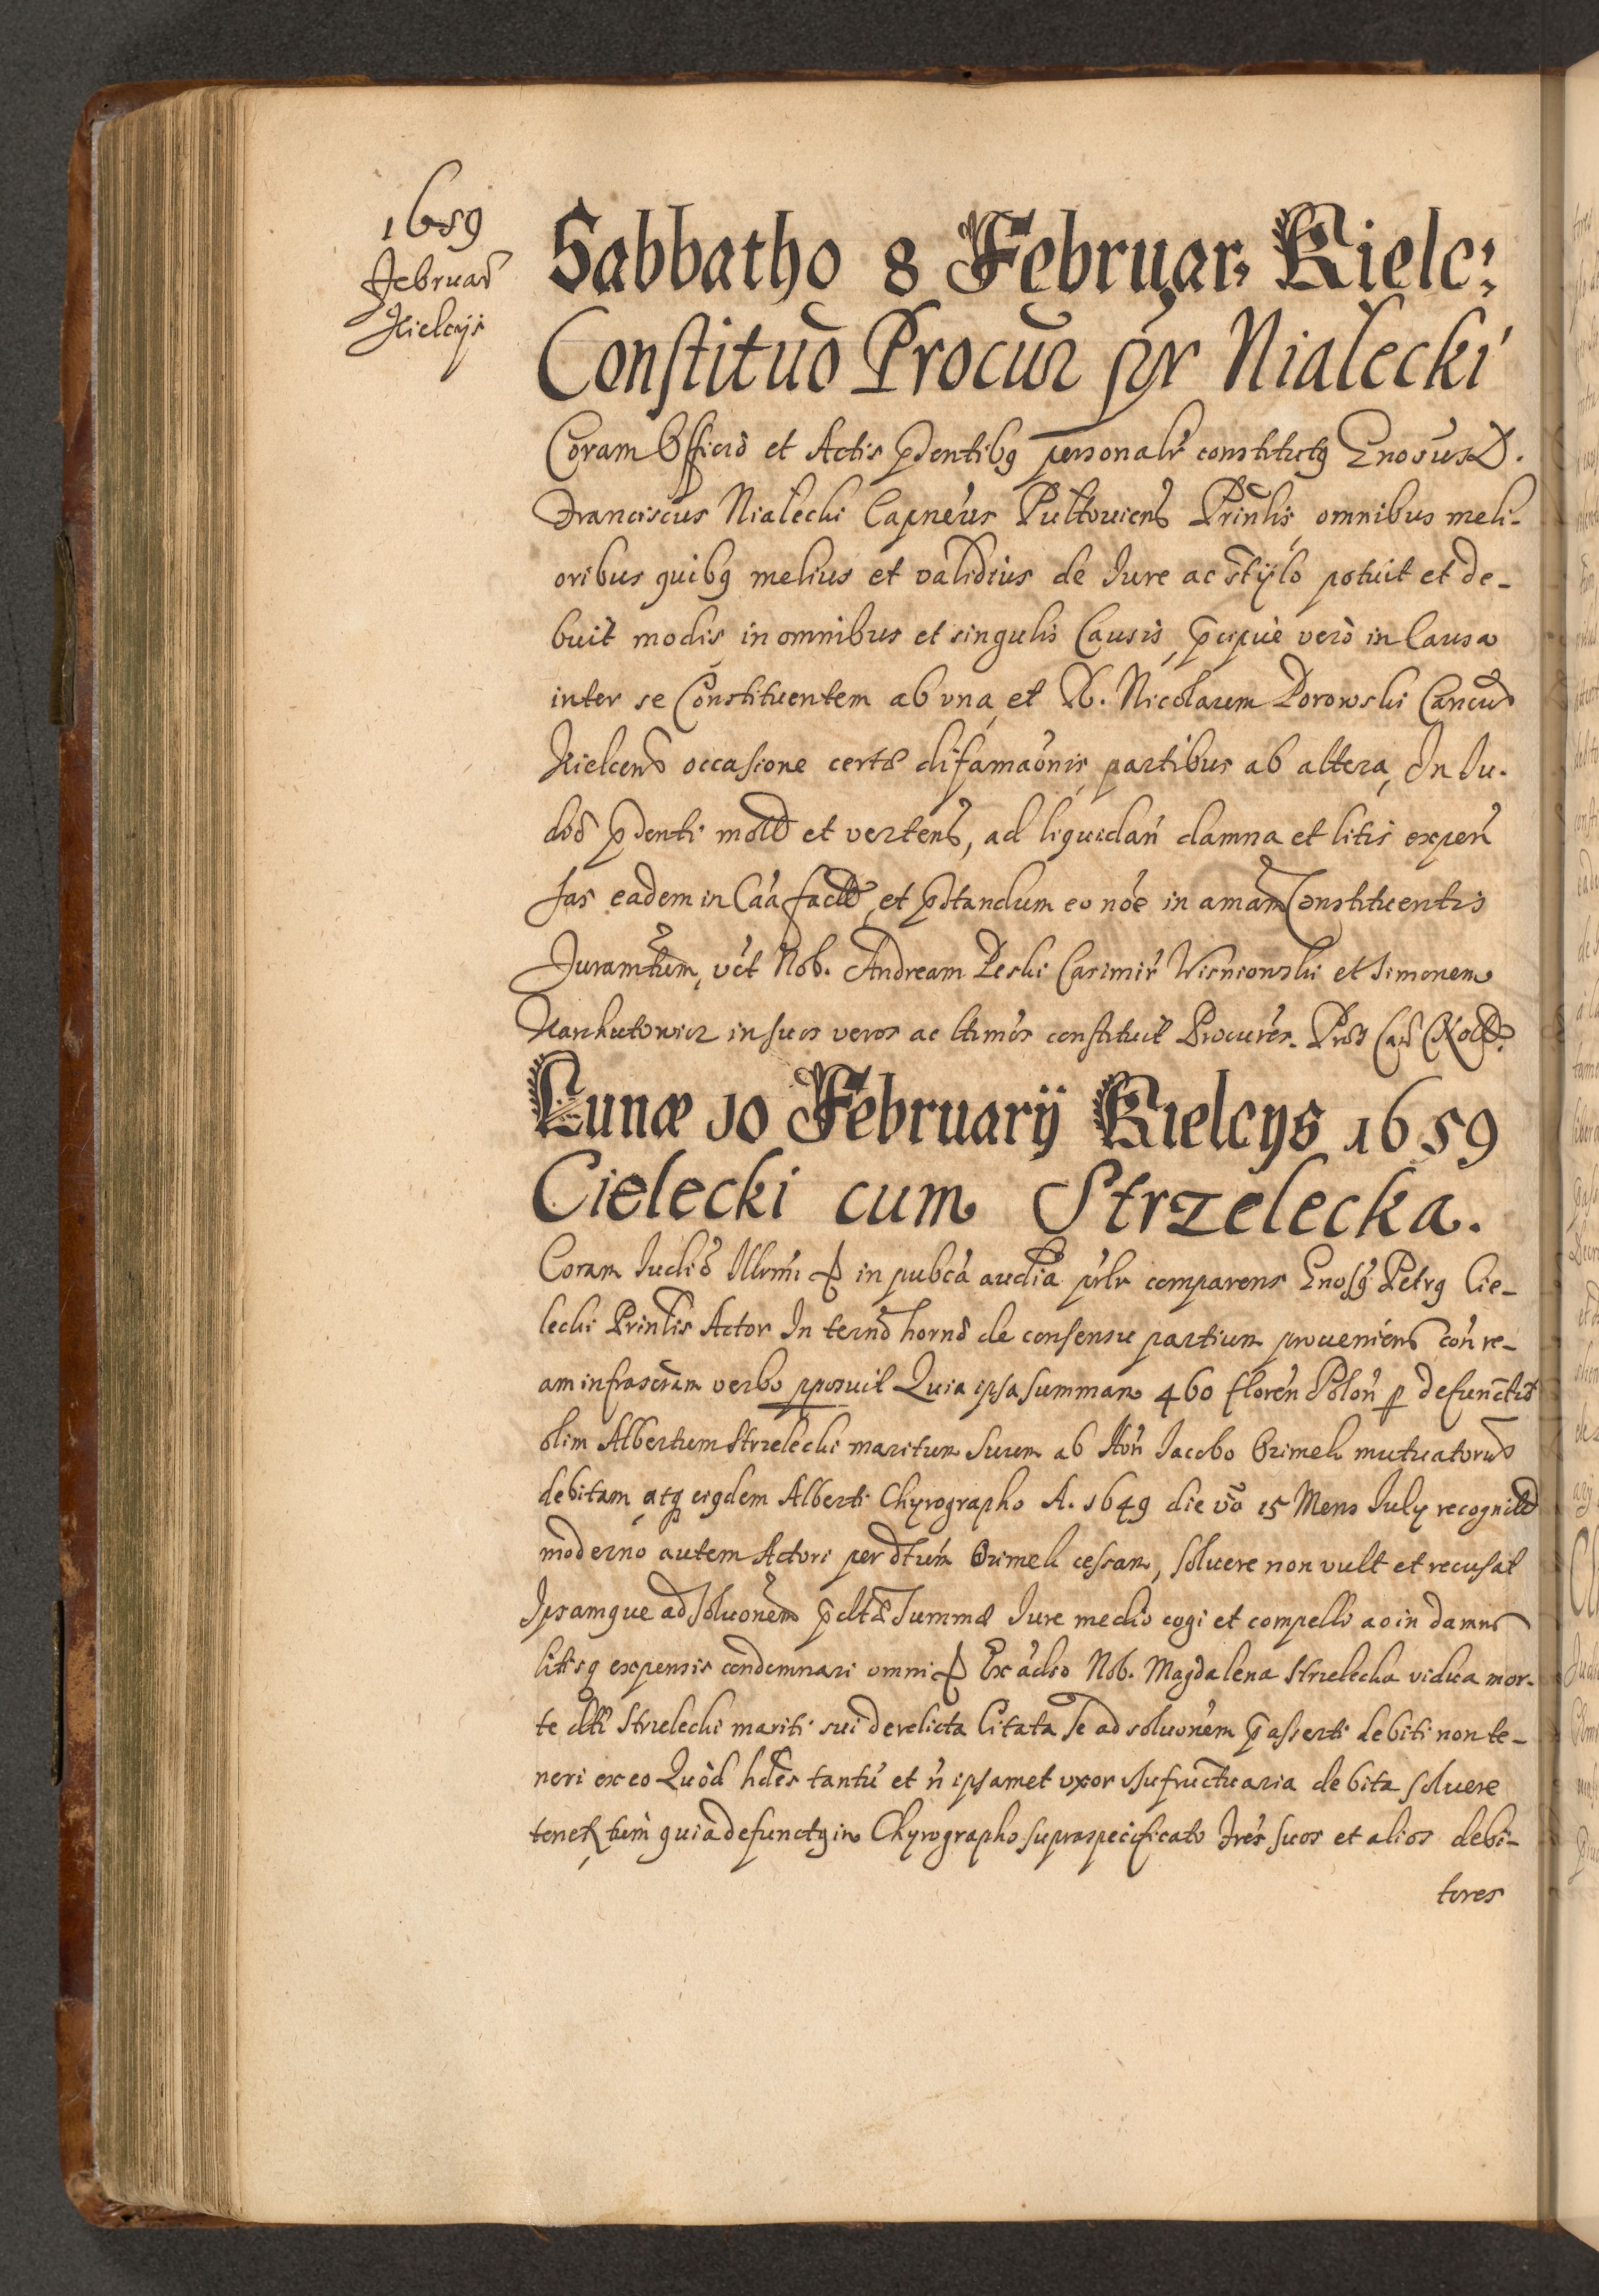 1659
Februar
Kielcijs
Sabbatho 8 Februar: Kielc:
Constituō Procur pr Nialecki
Coram Officiō et Actis p̄dentibꝫ personalr constitutꝫ Gnosus D.
Franciscus Nialecki Capneus Pultouiens Prīnlis, omnibus meli-
oribus quibꝫ melius et validius de Iure ac stylo potuit et de-
buit modis in omnibus et singulis Causis, p̄cipuè verò in Causa
inter se Constituentem ab vna, et D. Nicolaum Porowski Cancū
Kielcens occasione certæ difamaōnis, partibus ab altera, In Iu-
diō p̄denti mot et vertens, ad liquidań damna et litis expen
sas eadem in Cāa fact, et p̄standum eo nōe in amam Constituentis
Iuramtum, vt Nob. Andream Peski Casimir Wisniowski et Simonem
Narkutowicz in suos veros ac ltimos constituit Procures. Prs Can
Lunæ 10 Februarij Kielcijs 1659
Cielecki cum Strzelecka.
Coram Iudiō Illrmi in pubca audia prlr comparens Gnosꝫ Petrꝫ Cie-
lecki Prīnlis Actor In terno horno de consensu partium proueniens con re-
am infrascram verbo pposuit Quia ipsa summam 460 floren Polon p defunctū
olim Albertum Strzelecki maritum suum ab Hon Iacobo Grimek mutuatorio
debitam, atqꝫ eiꝫdem Alberti Chyrographo A. 1649 die vō 15 Mens July recognit
moderno autem Actori per dtum Grimek cessam, soluere non vult et recusat
Ipsamque ad soluonem p̄dtæ summæ Iure medio cogi et compelli ac in damnis
litisqꝫ expensis condemnari omni Ex aduo Nob. Magdalena Strzelecka vidua mor-
te dti Strzelecki mariti sui derelicta Citata se ad soluonem p̄asserti debiti non te-
neri ex eo Quòd hdes tantū et n ipsamet vxor vsufructuaria debita soluere
tenetr, tum quia defunctꝫ in Chyrographo supraspecificato fres suos et alios debi-
tores